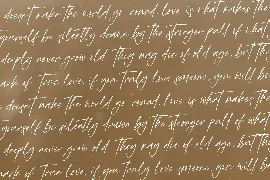 doesn't make the world go round. Love is what makes the
yourself be silently drawn by the stronger pull of what
deeply never grow old. They may die of old age, but th
ack of time. love. if you truly love someone, you will be
doesn't make the world go round. Love is what makes the
yourself be silently drawn by the stronger pull of what
deeply never grow old. They may die of old age, but th
ack of time. love. if you truly love someone, you will b